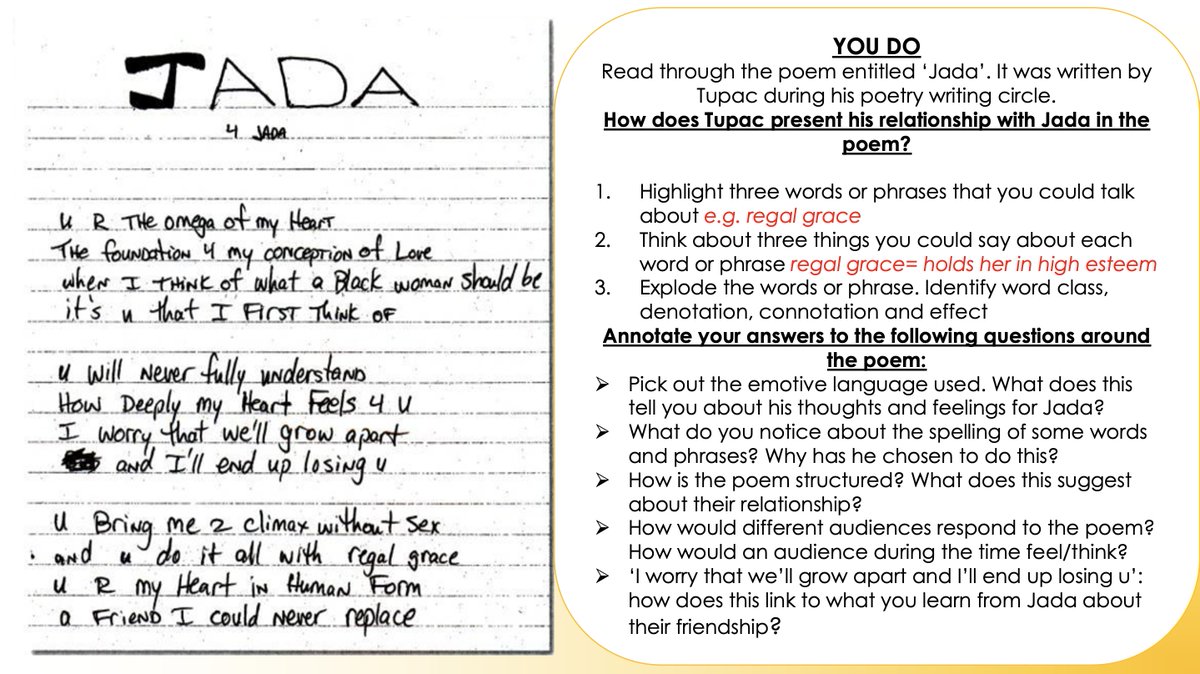 JADA
4 JADA
U R THE omega of my Heart
THE foundation 4 my conception of Love
when I THINK of what a Black woman should be
it's u that I FIRST THINK OF
u will Never fully understand
How Deeply my Heart Feels 4 U
I worry that we'll grow apart
and I'll end up losing u
U Bring me 2 climax without sex
and u do it all with regal grace
U R my Heart in Human Form
a Friend I could never replace
YOU DO
Read through the poem entitled ‘Jada’. It was written by
Tupac during his poetry writing circle.
How does Tupac present his relationship with Jada in the
poem?
1. Highlight three words or phrases that you could talk
about e.g. regal grace
2. Think about three things you could say about each
word or phrase regal grace= holds her in high esteem
3. Explode the words or phrase. Identify word class,
denotation, connotation and effect
Annotate your answers to the following questions around
the poem:
➢ Pick out the emotive language used. What does this
tell you about his thoughts and feelings for Jada?
➢ What do you notice about the spelling of some words
and phrases? Why has he chosen to do this?
➢ How is the poem structured? What does this suggest
about their relationship?
➢ How would different audiences respond to the poem?
How would an audience during the time feel/think?
➢ ‘I worry that we’ll grow apart and I’ll end up losing u’:
how does this link to what you learn from Jada about
their friendship?